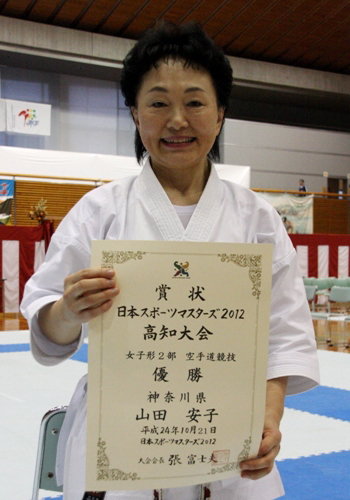 賞状
日本スポーツマスターズ2012
高知大会
女子形2部 空手道競技
優勝
神奈川県
山田 安子
平成24年10月21日
日本スポーツマスターズ2012
大会会長 張 富士夫